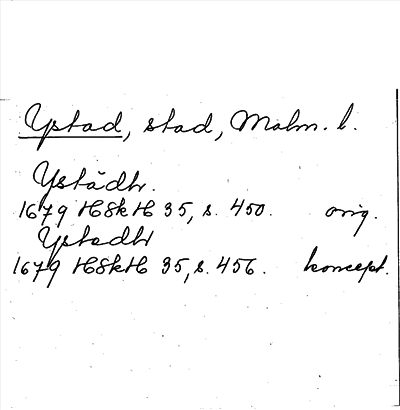 Ystad, stad, Malm. l.
Ystådh.
1679 HSkH 35, s. 450. orig.
Ystedh
1679 HSkH 35, s. 456. koncept.